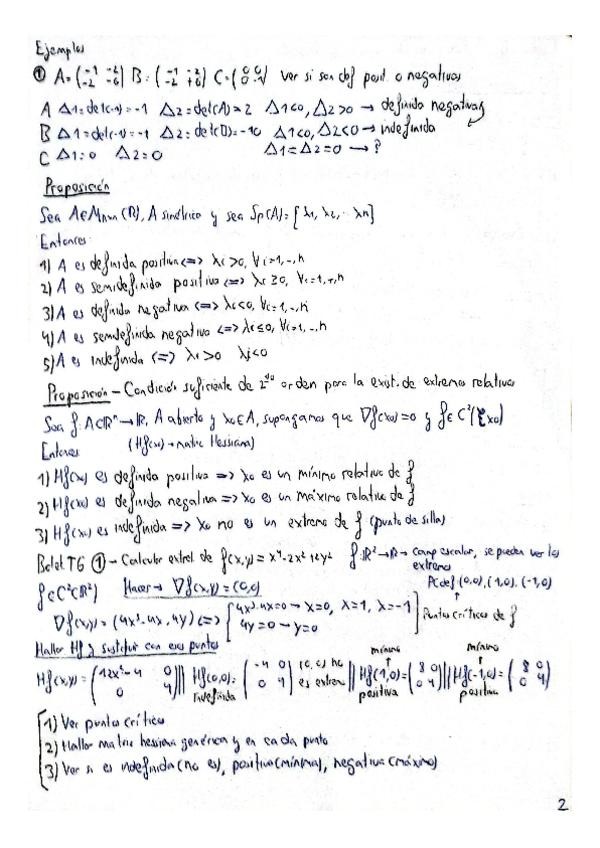 Ejemplos
① A=(-1 -2 / -2 -6) B=(-1 -2 / -2 +6) C=(0 0 / 0 -1) ver si son def posit. o negativas
A Δ1=det(-1)=-1 Δ2=det(A)=2 Δ1<0, Δ2>0 → definida negativas
B Δ1=det(-1)=-1 Δ2=det(D)=-10 Δ1<0, Δ2<0 → indefinida
C Δ1=0 Δ2=0 Δ1=Δ2=0 → ?
Proposición
Sea A∈Mnxn(R), A simétrico y sea Sp(A)=[λ1, λ2, ... λn]
Entonces
1) A es definida positiva <=> λi>0, ∀i=1,..,n
2) A es semidefinida positiva <=> λi≥0, ∀i=1,..,n
3) A es definida negativa <=> λi<0, ∀i=1,..,n
4) A es semidefinida negativa <=> λi≤0, ∀i=1,..,n
5) A es indefinida <=> λi>0 λj<0
Proposición - Condición suficiente de 2do orden para la exist. de extremos relativos
Sea f: A⊂Rⁿ→R, A abierto y x0∈A, supongamos que ∇f(x0)=0 y f∈C²({x0)
Entonces (Hf(x0)→matriz Hessiana)
1) Hf(x0) es definida positiva => x0 es un mínimo relativo de f
2) Hf(x0) es definida negativa => x0 es un máximo relativo de f
3) Hf(x0) es indefinida => x0 no es un extremo de f (punto de silla)
Bolet T6 ① - Calcular extrel de f(x,y)=x⁴-2x²+2y² f:R²→R→Camp escalar, se pueden ver los extremos
f∈C²(R²) Hacer → ∇f(x,y)=(0,0) PC de f (0,0), (1,0), (-1,0)
∇f(x,y)=(4x³-4x, 4y) <=> [4x³-4x=0→x=0, λ=1, λ=-1 / 4y=0→y=0] Puntos críticos de f
Hallar Hf y sustituir con esos puntos mínimo mínimo
Hf(x,y)=(12x²-4 0 / 0 4) || Hf(0,0)=(-4 0 / 0 4) (0,0) no es extremo || Hf(1,0)=(8 0 / 0 4) || Hf(-1,0)=(8 0 / 0 4)
indefinida positiva positiva
1) Ver puntos críticos
2) Hallar matriz hessiana genérica y en cada punto
3) Ver si es indefinida(no es), positiva(mínimo), negativa(máximo)
2